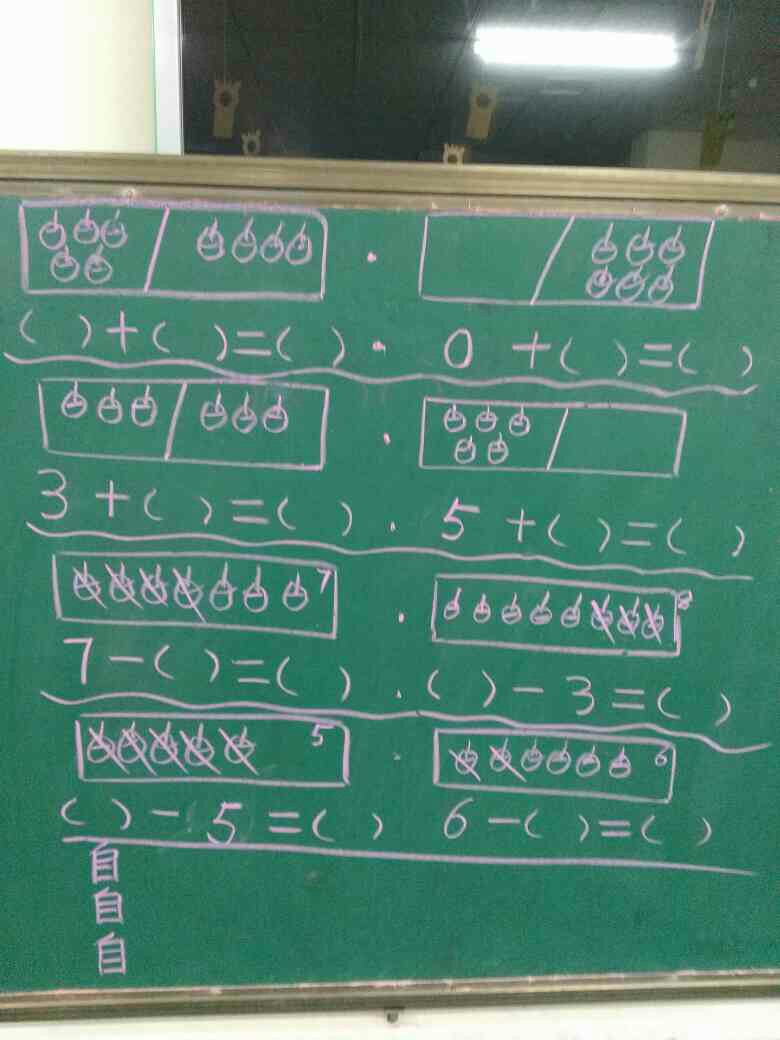 ( ) + ( ) = ( ) . 0 + ( ) = ( )
3 + ( ) = ( ) . 5 + ( ) = ( )
7 8
7 - ( ) = ( ) . ( ) - 3 = ( )
5 6
( ) - 5 = ( ) 6 - ( ) = ( )
自
自
自